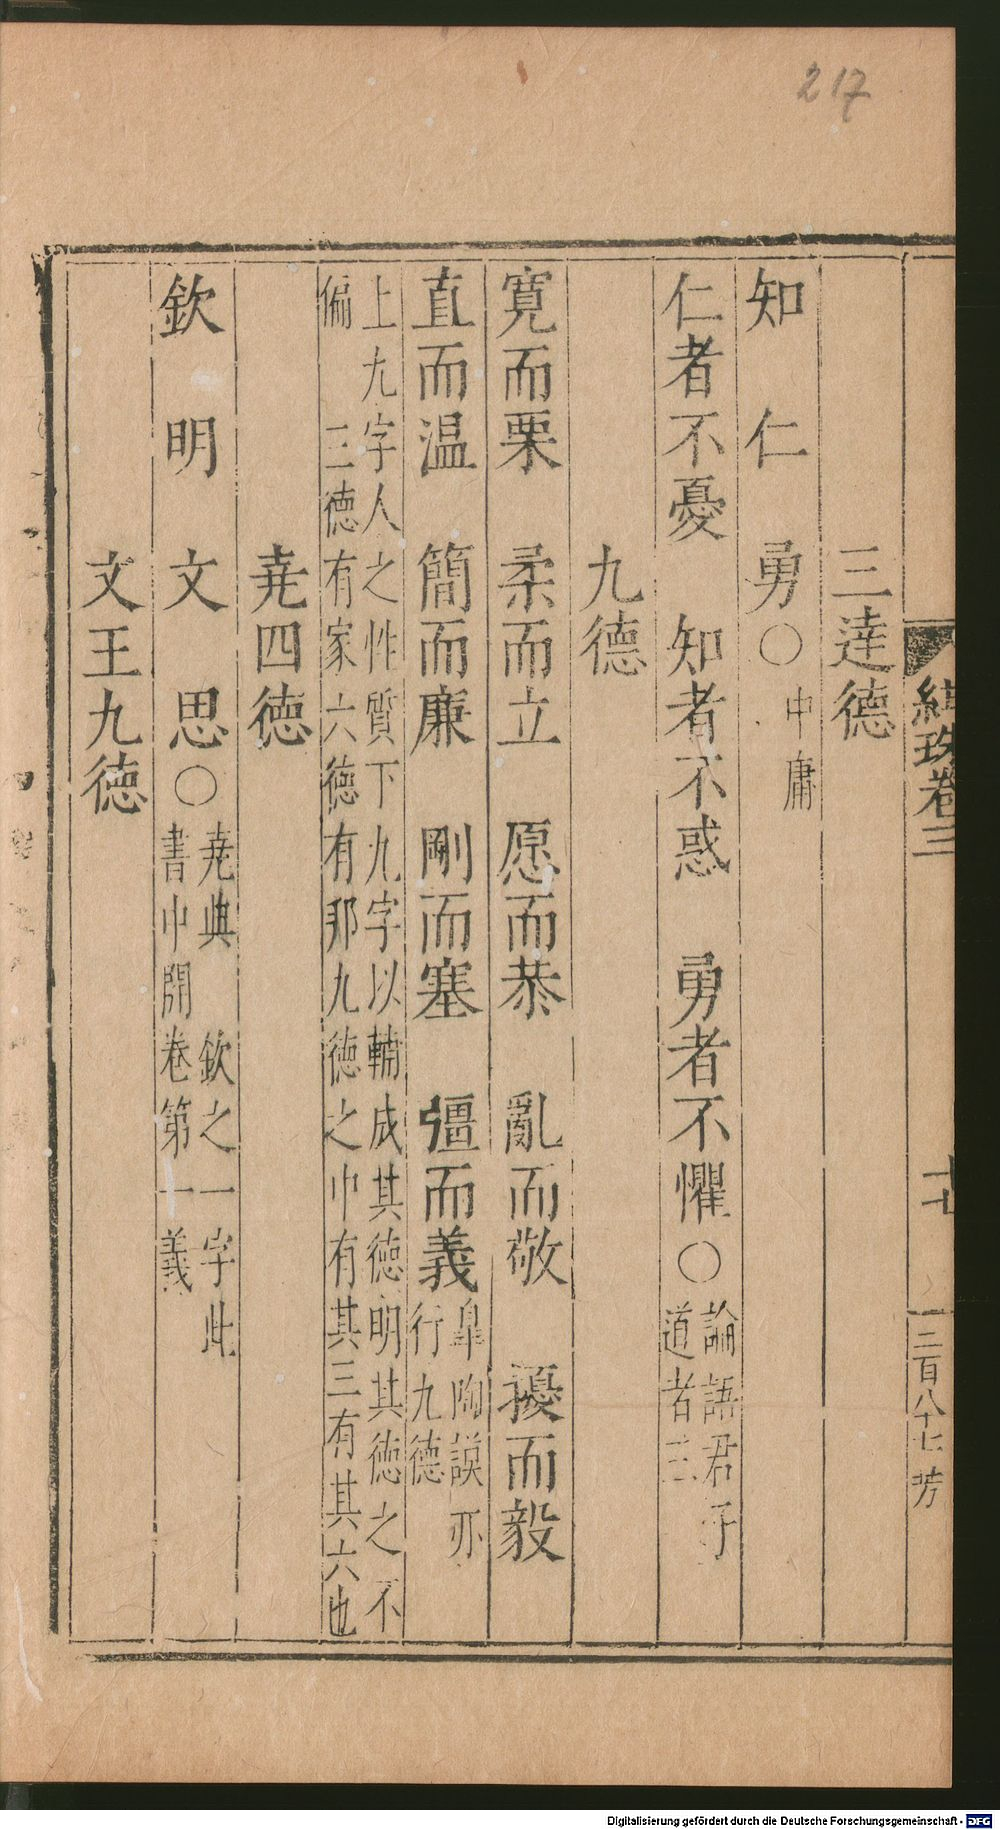 217
緝珠卷三
十七
二百八十七 芳
三達德
知 仁 勇○中庸
仁者不憂 知者不惑 勇者不懼○論語君子道者三
九德
寬而栗 柔而立 愿而恭 亂而敬 擾而毅
直而温 簡而廉 剛而塞 彊而義 皐陶謨亦行九德
上九字人之性質下九字以輔成其德明其德之不
偏 三德有家六德有邦九德之中有其三有其六也
堯四德
欽 明 文 思○堯典 欽之一字此書中開卷第一義
文王九德
Digitalisierung gefördert durch die Deutsche Forschungsgemeinschaft - DFG